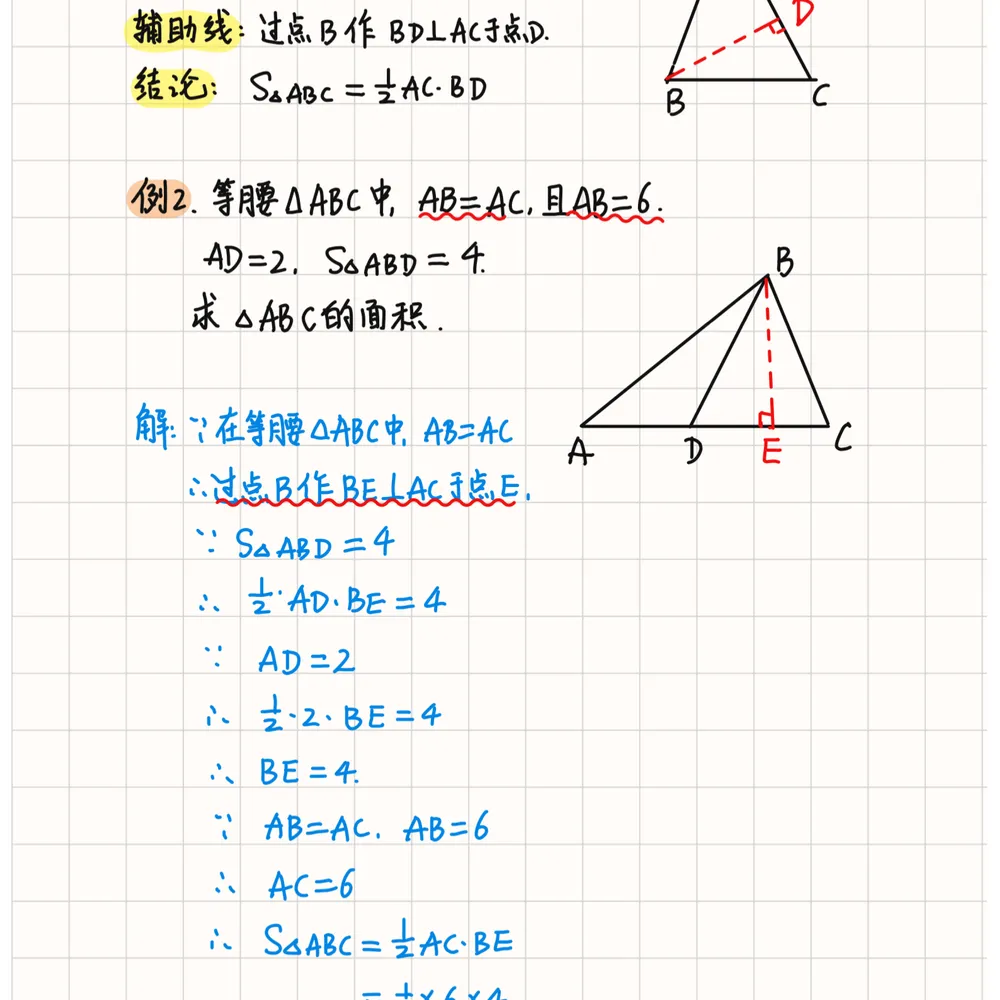 辅助线: 过点B作 BD⊥AC于点D.
结论: S△ABC = 1/2 AC·BD
D
B
C
例2. 等腰△ABC中, AB=AC, 且AB=6.
AD=2, S△ABD = 4.
求 △ABC的面积.
B
A
D
E
C
解: ∵在等腰△ABC中, AB=AC
∴过点B作BE⊥AC于点E,
∵ S△ABD = 4
∴ 1/2·AD·BE = 4
∵ AD=2
∴ 1/2·2·BE=4
∴ BE=4.
∵ AB=AC, AB=6
∴ AC=6
∴ S△ABC = 1/2 AC·BE
= 1/2×6×4